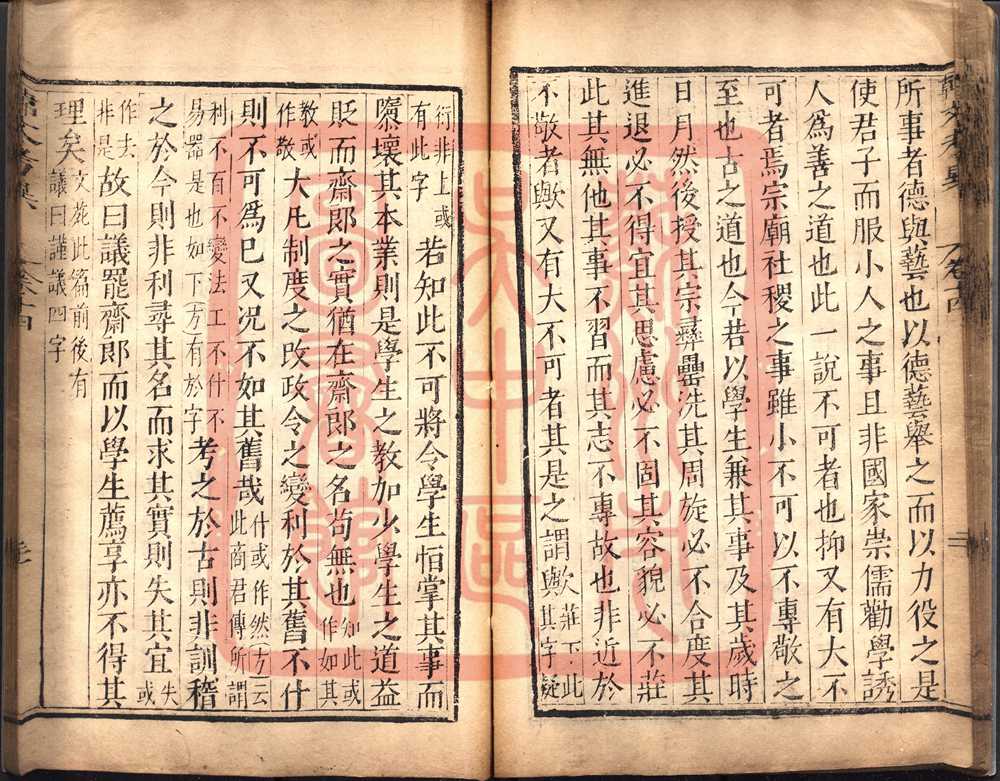 所事者德與藝也以德藝舉之而以力役之是
使君子而服小人之事且非國家崇儒勸學誘
人為善之道也此一說不可者也抑又有大不
可者焉宗廟社稷之事雖小不可以不專敬之
至也古之道也今若以學生兼其事及其歲時
日月然後授其宗彝罍洗其周旋必不合度其
進退必不得宜其思慮必不固其容貌必不莊
此其無他其事不習而其志不專故也非近於
不敬者歟又有大不可者其是之謂歟莊下此其字疑
衍非上或有此字若知此不可將令學生恒掌其事而
隳壞其本業則是學生之教加少學生之道益
貶而齋郎之實猶在齋郎之名苟無也知此或作如其
教或作敬大凡制度之改政令之變利於其舊不什
則不可為已又况不如其舊哉什或作然方云此商君傳所謂
利不百不變法工不什不易器是也如下方有於字考之於古則非訓稽
之於今則非利尋其名而求其實則失其宜失或
作去非是故曰議罷齋郎而以學生薦享亦不得其
理矣文苑此篇前後有議曰謹議四字